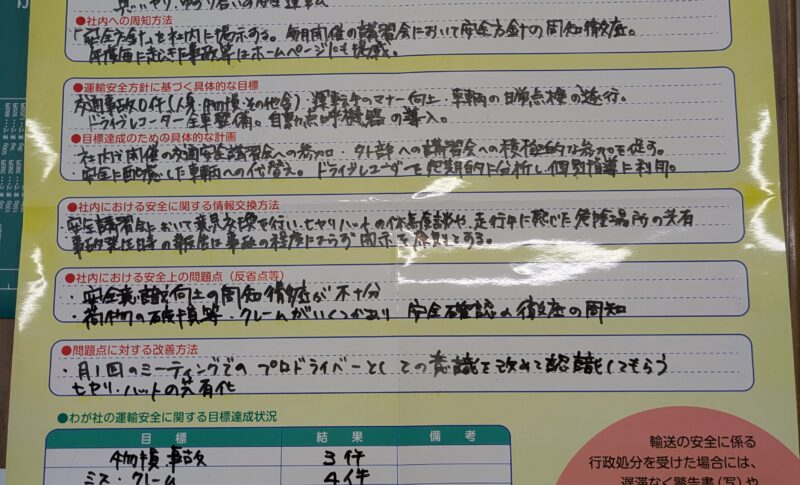 思いやり、ゆずり合いの
●社内への周知方法
「安全方針」を社内に掲示する。毎月開催の講習会において安全方針の周知徹底。
年度毎に起きた事故等はホームページにも掲載。
●運輸安全方針に基づく具体的な目標
交通事故0件(人身・物損・その他含) 運転手のマナー向上・車輌の日常点検の遂行。
ドライブレコーダー全車整備。自動点呼機器の導入。
●目標達成のための具体的な計画
社内で開催の交通安全講習会への参加 外部への講習会への積極的な参加を促す。
安全に配慮した車輌への代替え。ドライブレコーダーを定期的に分析し個別指導に利用。
●社内における安全に関する情報交換方法
安全講習会において意見交換を行い、ヒヤリハットの体験談や、走行中に感じた危険場所の共有
事故発生時の報告は事故の程度にならず 周示を原則とする。
●社内における安全上の問題点（反省点等）
・安全意識向上の周知徹底が不十分
・荷物の破損等・クレームがいくつかあり 安全確認の徹底の周知
●問題点に対する改善方法
・月1回のミーティングでの プロドライバーとしての意識を改めて認識してもらう
ヒヤリ・ハットの共有化
●わが社の運輸安全に関する目標達成状況
目標 結果 備考
物損事故 3件
ミス・クレーム 4件
輸送の安全に係る
行政処分を受けた場合には、
遅滞なく警告書（写）や